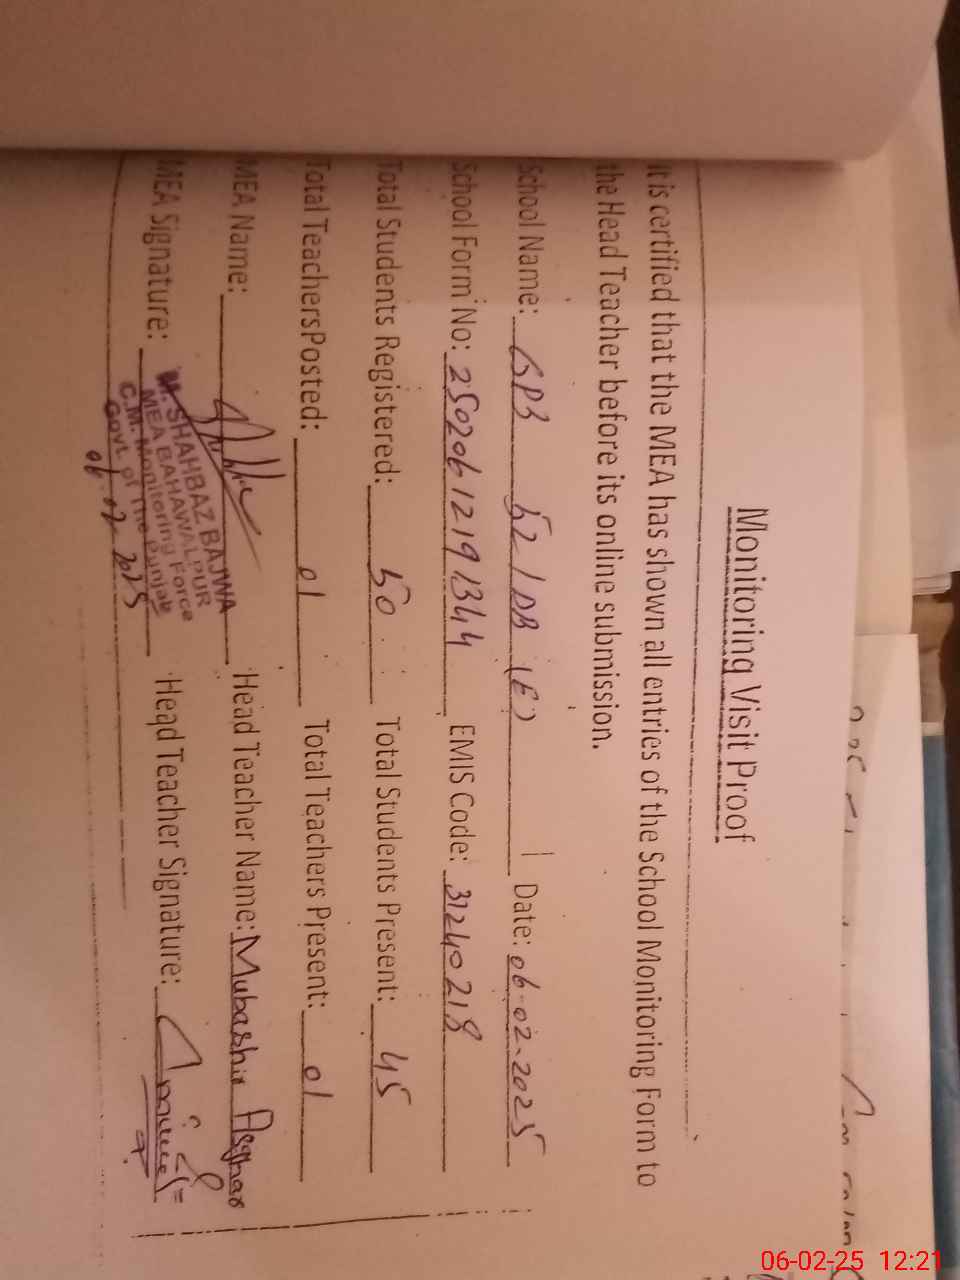 Monitoring Visit Proof
It is certified that the MEA has shown all entries of the School Monitoring Form to
the Head Teacher before its online submission.
School Name: GPS 52/DB (E) Date: 06-02-2025
School Form No: 25020612191344 EMIS Code: 31240218
Total Students Registered: 50 Total Students Present: 45
Total TeachersPosted: 01 Total Teachers Present: 01
MEA Name: Head Teacher Name: Mubashir Asghar
MEA Signature: Head Teacher Signature:
M. SHAHBAZ BAJWA
MEA BAHAWALPUR
C.M. Monitoring Force
Govt. of The Punjab
06-02-2025
06-02-25 12:21